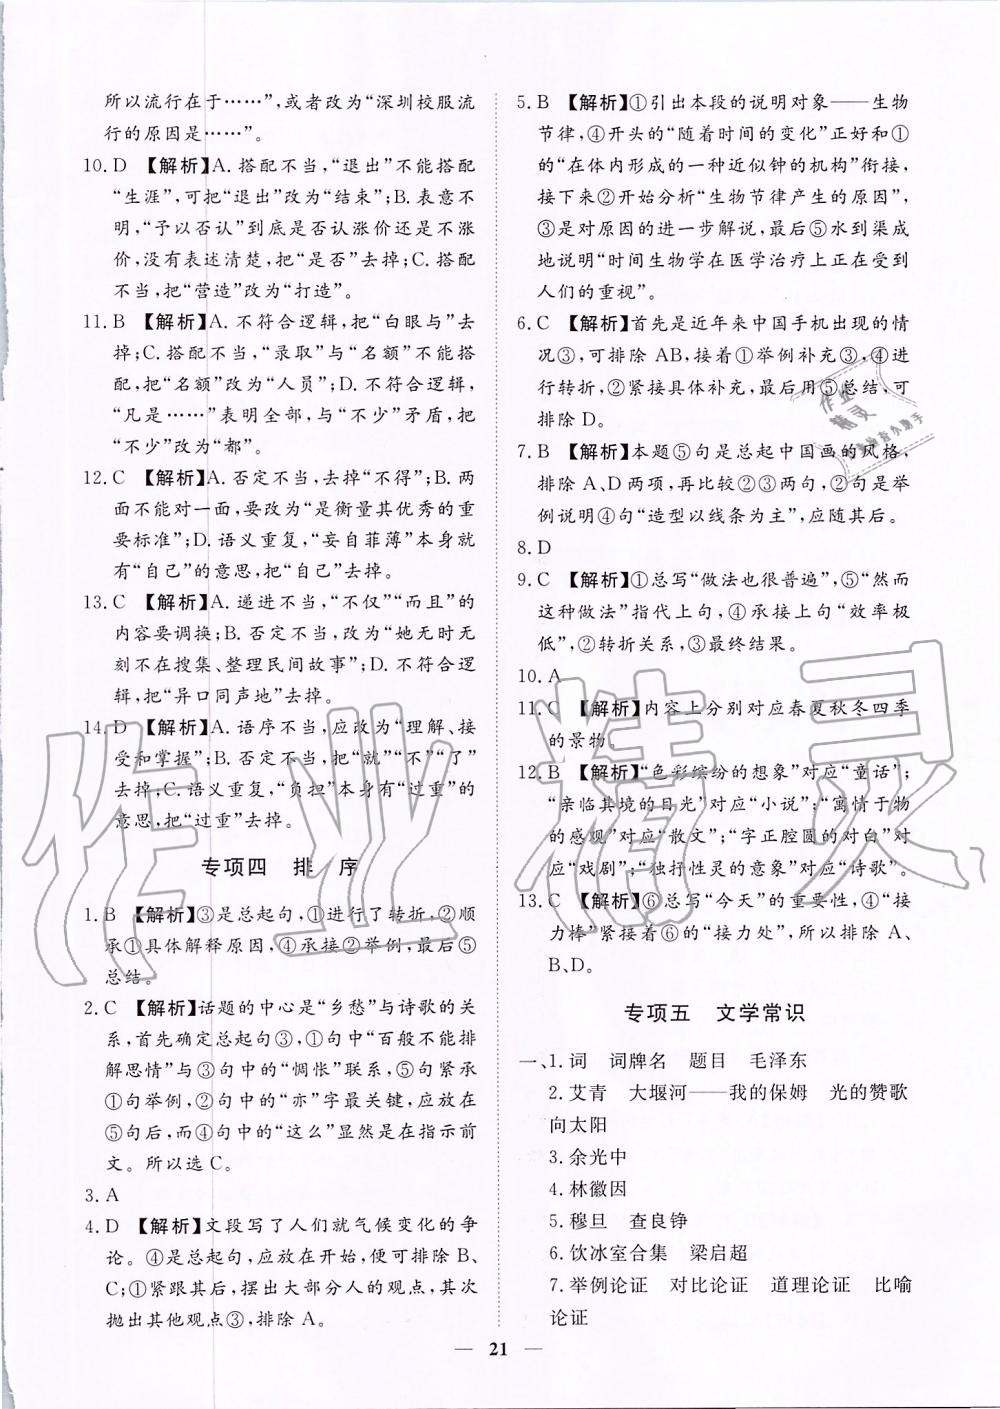 所以流行在于……”,或者改为“深圳校服流
行的原因是……”。
10. D 【解析】A. 搭配不当,“退出”不能搭配
“生涯”,可把“退出”改为“结束”;B. 表意不
明,“予以否认”到底是否认涨价还是不涨
价,没有表述清楚,把“是否”去掉;C. 搭配
不当,把“营造”改为“打造”。
11. B 【解析】A. 不符合逻辑,把“白眼与”去
掉;C. 搭配不当,“录取”与“名额”不能搭
配,把“名额”改为“人员”;D. 不符合逻辑,
“凡是……”表明全部,与“不少”矛盾,把
“不少”改为“都”。
12. C 【解析】A. 否定不当,去掉“不得”;B. 两
面不能对一面,要改为“是衡量其优秀的重
要标准”;D. 语义重复,“妄自菲薄”本身就
有“自己”的意思,把“自己”去掉。
13. C 【解析】A. 递进不当,“不仅”“而且”的
内容要调换;B. 否定不当,改为“她无时无
刻不在搜集、整理民间故事”;D. 不符合逻
辑,把“异口同声地”去掉。
14. D 【解析】A. 语序不当,应改为“理解、接
受和掌握”;B. 不合逻辑,把“就”“不”“了”
去掉;C. 语义重复,“负担”本身有“过重”的
意思,把“过重”去掉。
专项四 排 序
1. B 【解析】③是总起句,①进行了转折,②顺
承①具体解释原因,④承接②举例,最后⑤
总结。
2. C 【解析】话题的中心是“乡愁”与诗歌的关
系,首先确定总起句③,①句中“百般不能排
解思情”与③句中的“惆怅”联系,⑤句承接
①句举例,②句中的“亦”字最关键,应放在
⑤句后,而④句中的“这么”显然是在指示前
文。所以选 C。
3. A
4. D 【解析】文段写了人们就气候变化的争
论。④是总起句,应放在开始,便可排除 B、
C;①紧跟其后,摆出大部分人的观点,其次
抛出其他观点③,排除 A。
5. B 【解析】①引出本段的说明对象——生物
节律,④开头的“随着时间的变化”正好和①
的“在体内形成的一种近似钟的机构”衔接,
接下来②开始分析“生物节律产生的原因”,
③是对原因的进一步解说,最后⑤水到渠成
地说明“时间生物学在医学治疗上正在受到
人们的重视”。
6. C 【解析】首先是近年来中国手机出现的情
况③,可排除 AB,接着①举例补充③,④进
行转折,②紧接具体补充,最后用⑤总结,可
排除 D。
7. B 【解析】本题⑤句是总起中国画的风格,
排除 A、D 两项,再比较②③两句,②句是举
例说明④句“造型以线条为主”,应随其后。
8. D
9. C 【解析】①总写“做法也很普遍”,⑤“然而
这种做法”指代上句,④承接上句“效率极
低”,②转折关系,③最终结果。
10. A
11. C 【解析】内容上分别对应春夏秋冬四季
的景物。
12. B 【解析】“色彩缤纷的想象”对应“童话”;
“亲临其境的目光”对应“小说”;“寓情于物
的感观”对应“散文”;“字正腔圆的对白”对
应“戏剧”;“独抒性灵的意象”对应“诗歌”。
13. C 【解析】⑥总写“今天”的重要性,④“接
力棒”紧接着⑥的“接力处”,所以排除 A、
B、D。
专项五 文学常识
一、1. 词 词牌名 题目 毛泽东
2. 艾青 大堰河——我的保姆 光的赞歌
向太阳
3. 余光中
4. 林徽因
5. 穆旦 查良铮
6. 饮冰室合集 梁启超
7. 举例论证 对比论证 道理论证 比喻
论证
— 21 —
作业精灵
作业
精灵